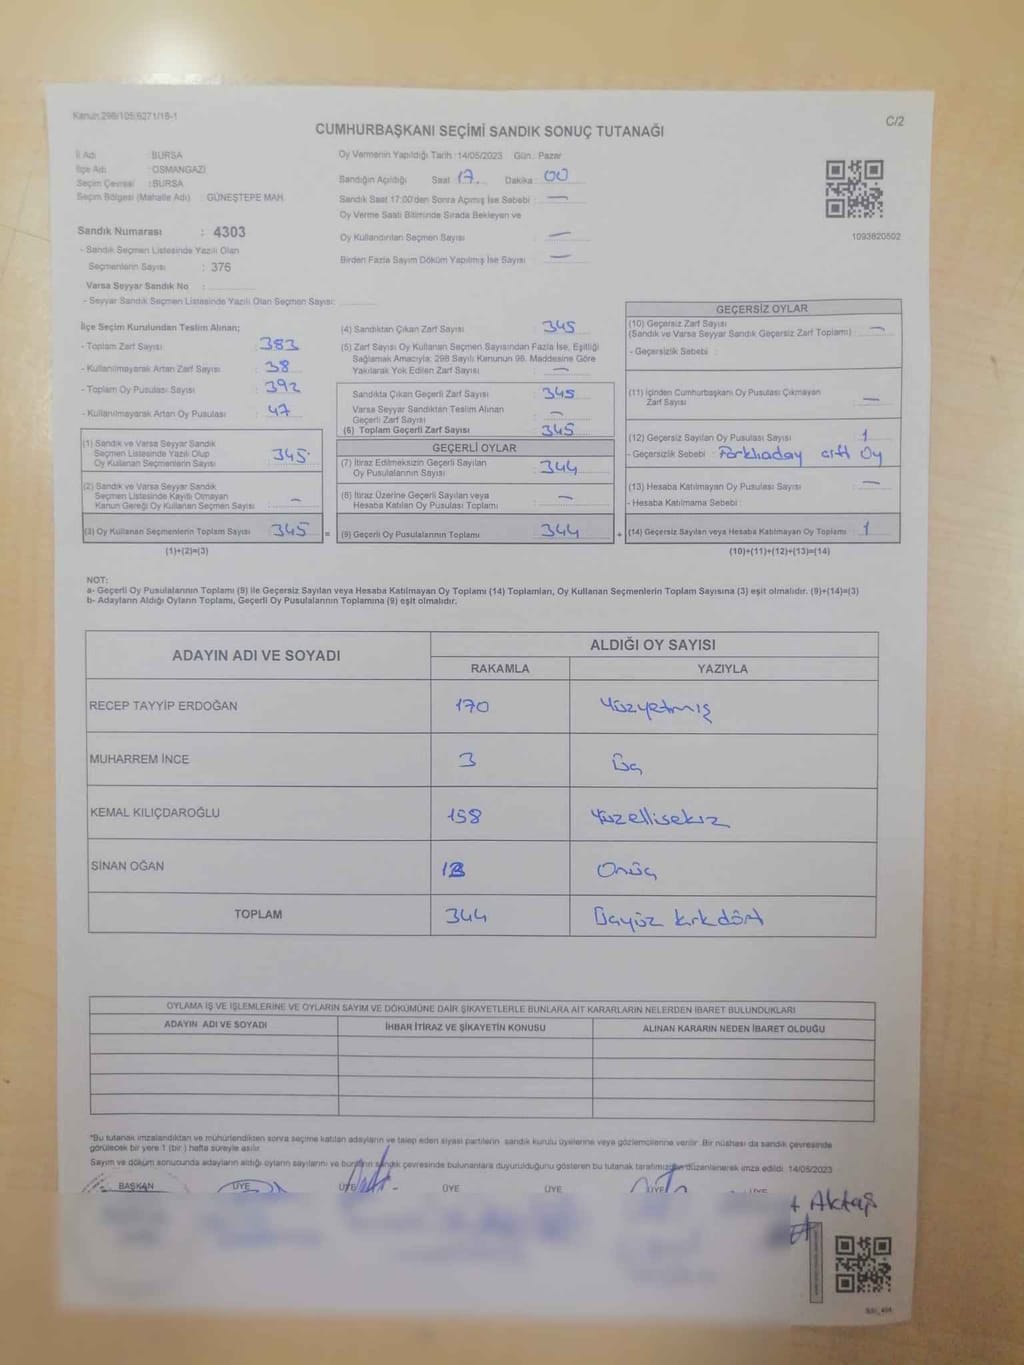 Kanun:298/105;6271/18-1
C/2
CUMHURBAŞKANI SEÇİMİ SANDIK SONUÇ TUTANAĞI
İl Adı : BURSA
İlçe Adı : OSMANGAZİ
Seçim Çevresi : BURSA
Seçim Bölgesi (Mahalle Adı) : GÜNEŞTEPE MAH.
Sandık Numarası : 4303
- Sandık Seçmen Listesinde Yazılı Olan
Seçmenlerin Sayısı : 376
Varsa Seyyar Sandık No :
- Seyyar Sandık Seçmen Listesinde Yazılı Olan Seçmen Sayısı:
Oy Vermenin Yapıldığı Tarih :14/05/2023 Gün : Pazar
Sandığın Açıldığı Saat 17 Dakika : 00
Sandık Saat 17:00'den Sonra Açımış İse Sebebi : —
Oy Verme Saati Bitiminde Sırada Bekleyen ve
Oy Kullandırılan Seçmen Sayısı : —
Birden Fazla Sayım Döküm Yapılmış İse Sayısı : —
1093620502
İlçe Seçim Kurulundan Teslim Alınan;
- Toplam Zarf Sayısı : 383
- Kullanılmayarak Artan Zarf Sayısı : 38
- Toplam Oy Pusulası Sayısı : 392
- Kullanılmayarak Artan Oy Pusulası : 47
(1) Sandık ve Varsa Seyyar Sandık
Seçmen Listesinde Yazılı Olup
Oy Kullanan Seçmenlerin Sayısı : 345
(2) Sandık ve Varsa Seyyar Sandık
Seçmen Listesinde Kayıtlı Olmayan
Kanun Gereği Oy Kullanan Seçmen Sayısı : —
(3) Oy Kullanan Seçmenlerin Toplam Sayısı : 345
(1)+(2)=(3)
(4) Sandıktan Çıkan Zarf Sayısı : 345
(5) Zarf Sayısı Oy Kullanan Seçmen Sayısından Fazla İse, Eşitliği
Sağlamak Amacıyla; 298 Sayılı Kanunun 98. Maddesine Göre
Yakılarak Yok Edilen Zarf Sayısı : —
Sandıkta Çıkan Geçerli Zarf Sayısı : 345
Varsa Seyyar Sandıktan Teslim Alınan
Geçerli Zarf Sayısı : —
(6) Toplam Geçerli Zarf Sayısı : 345
GEÇERLİ OYLAR
(7) İtiraz Edilmeksizin Geçerli Sayılan
Oy Pusulalarının Sayısı : 344
(8) İtiraz Üzerine Geçerli Sayılan veya
Hesaba Katılan Oy Pusulası Toplamı : —
= (9) Geçerli Oy Pusulalarının Toplamı : 344
GEÇERSİZ OYLAR
(10) Geçersiz Zarf Sayısı
(Sandık ve Varsa Seyyar Sandık Geçersiz Zarf Toplamı) : —
- Geçersizlik Sebebi :
(11) İçinden Cumhurbaşkanı Oy Pusulası Çıkmayan
Zarf Sayısı : —
(12) Geçersiz Sayılan Oy Pusulası Sayısı : 1
- Geçersizlik Sebebi : çift Oy
(13) Hesaba Katılmayan Oy Pusulası Sayısı : —
- Hesaba Katılmama Sebebi :
+ (14) Geçersiz Sayılan veya Hesaba Katılmayan Oy Toplamı : 1
(10)+(11)+(12)+(13)=(14)
NOT:
a- Geçerli Oy Pusulalarının Toplamı (9) ile Geçersiz Sayılan veya Hesaba Katılmayan Oy Toplamı (14) Toplamları, Oy Kullanan Seçmenlerin Toplam Sayısına (3) eşit olmalıdır. (9)+(14)=(3)
b- Adayların Aldığı Oyların Toplamı, Geçerli Oy Pusulalarının Toplamına (9) eşit olmalıdır.
ADAYIN ADI VE SOYADI
ALDIĞI OY SAYISI
RAKAMLA YAZIYLA
RECEP TAYYİP ERDOĞAN 170 Yüzyetmiş
MUHARREM İNCE 3 Üç
KEMAL KILIÇDAROĞLU 158 Yüzellisekiz
SİNAN OĞAN 13 Onüç
TOPLAM 344 Üçyüz kırkdört
OYLAMA İŞ VE İŞLEMLERİNE VE OYLARIN SAYIM VE DÖKÜMÜNE DAİR ŞİKAYETLERLE BUNLARA AİT KARARLARIN NELERDEN İBARET BULUNDUKLARI
ADAYIN ADI VE SOYADI İHBAR İTİRAZ VE ŞİKAYETİN KONUSU ALINAN KARARIN NEDEN İBARET OLDUĞU
*Bu tutanak imzalandıktan ve mühürlendikten sonra seçime katılan adayların ve talep eden siyasi partilerin sandık kurulu üyelerine veya gözlemcilerine verilir. Bir nüshası da sandık çevresinde
görülecek bir yere 1 (bir) hafta süreyle asılır.
Sayım ve döküm sonucunda adayların aldığı oyların sayılarını ve bunların sandık çevresinde bulunanlara duyurulduğunu gösteren bu tutanak tarafımızdan düzenlenerek imza edildi. 14/05/2023
BAŞKAN ÜYE ÜYE ÜYE ÜYE ÜYE ÜYE
Aktaş